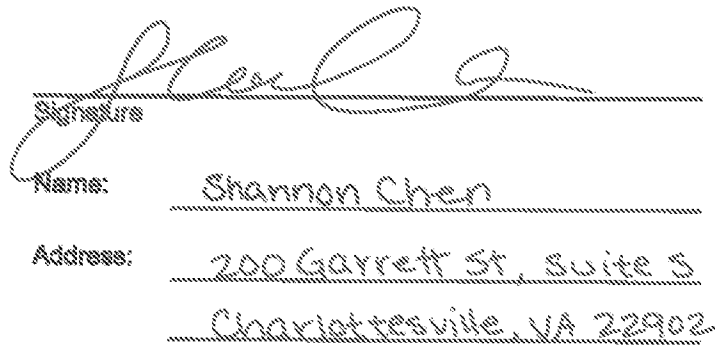 Signature
Name: Shannon Chen
Address: 200 Garrett St, Suite S
Charlottesville, VA 22902